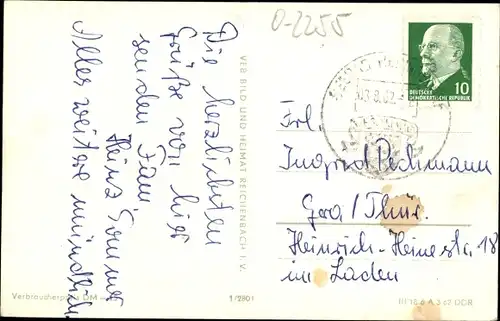 0-2255
Die herzlichsten
Grüße von hier
senden Fam
Heinz Sommer
Alles weitere mündlich.
VEB BILD UND HEIMAT REICHENBACH I. V.
10
DEUTSCHE
DEMOKRATISCHE REPUBLIK
Frl.
Ingrid Pechmann
Gera / Thür.
Heinrich-Heinestr. 18
im Laden
Verbraucherpreis DM
1/2801
III 18 8 A 3 62 DDR